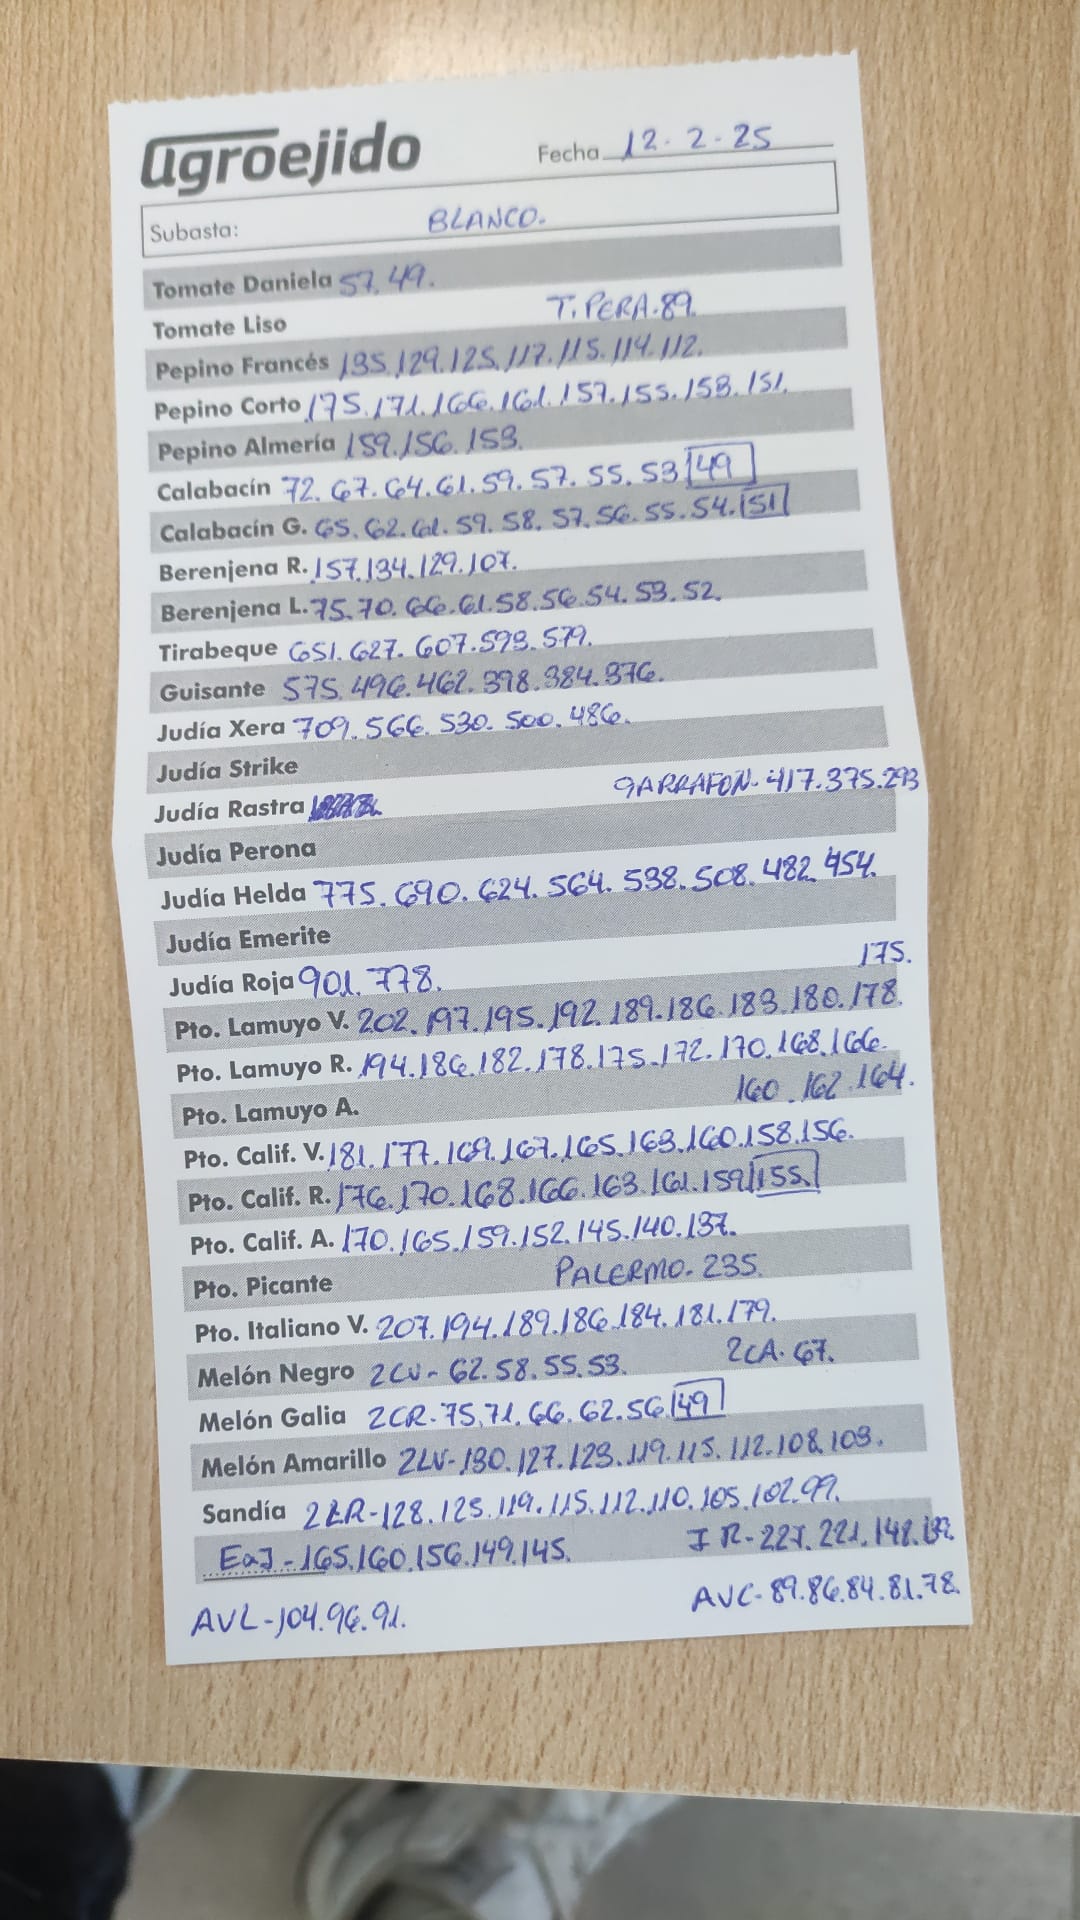 agroejido
Fecha 12-2-25
Subasta: BLANCO.
Tomate Daniela 57.49.
Tomate Liso T.PERA.89.
Pepino Francés 135.129.125.117.115.114.112.
Pepino Corto 175.171.166.161.157.155.153.151.
Pepino Almería 159.156.153.
Calabacín 72.67.64.61.59.57.55.53 49
Calabacín G. 65.62.61.59.58.57.56.55.54. 51
Berenjena R. 157.134.129.107.
Berenjena L. 75.70.66.61.58.56.54.53.52.
Tirabeque 651.627.607.593.579.
Guisante 575.496.462.398.384.376.
Judía Xera 709.566.530.500.486.
Judía Strike
Judía Rastra GARRAFON-417.375.293
Judía Perona
Judía Helda 775.690.624.564.538.508.482.454.
Judía Emerite
Judía Roja 901.778. 175.
Pto. Lamuyo V. 202.197.195.192.189.186.183.180.178.
Pto. Lamuyo R. 194.186.182.178.175.172.170.168.166.
Pto. Lamuyo A. 160.162.164.
Pto. Calif. V. 181.177.169.167.165.163.160.158.156.
Pto. Calif. R. 176.170.168.166.163.161.159 155.
Pto. Calif. A. 170.165.159.152.145.140.137.
Pto. Picante PALERMO-235.
Pto. Italiano V. 207.194.189.186.184.181.179.
Melón Negro 2CV-62.58.55.53. 2CA-67.
Melón Galia 2CR-75.71.66.62.56 49
Melón Amarillo 2LV-130.127.123.119.115.112.108.103.
Sandía 2LR-128.125.119.115.112.110.105.102.99.
EaJ-165.160.156.149.145. IR-227.221.142.
AVL-104.96.91. AVC-89.86.84.81.78.